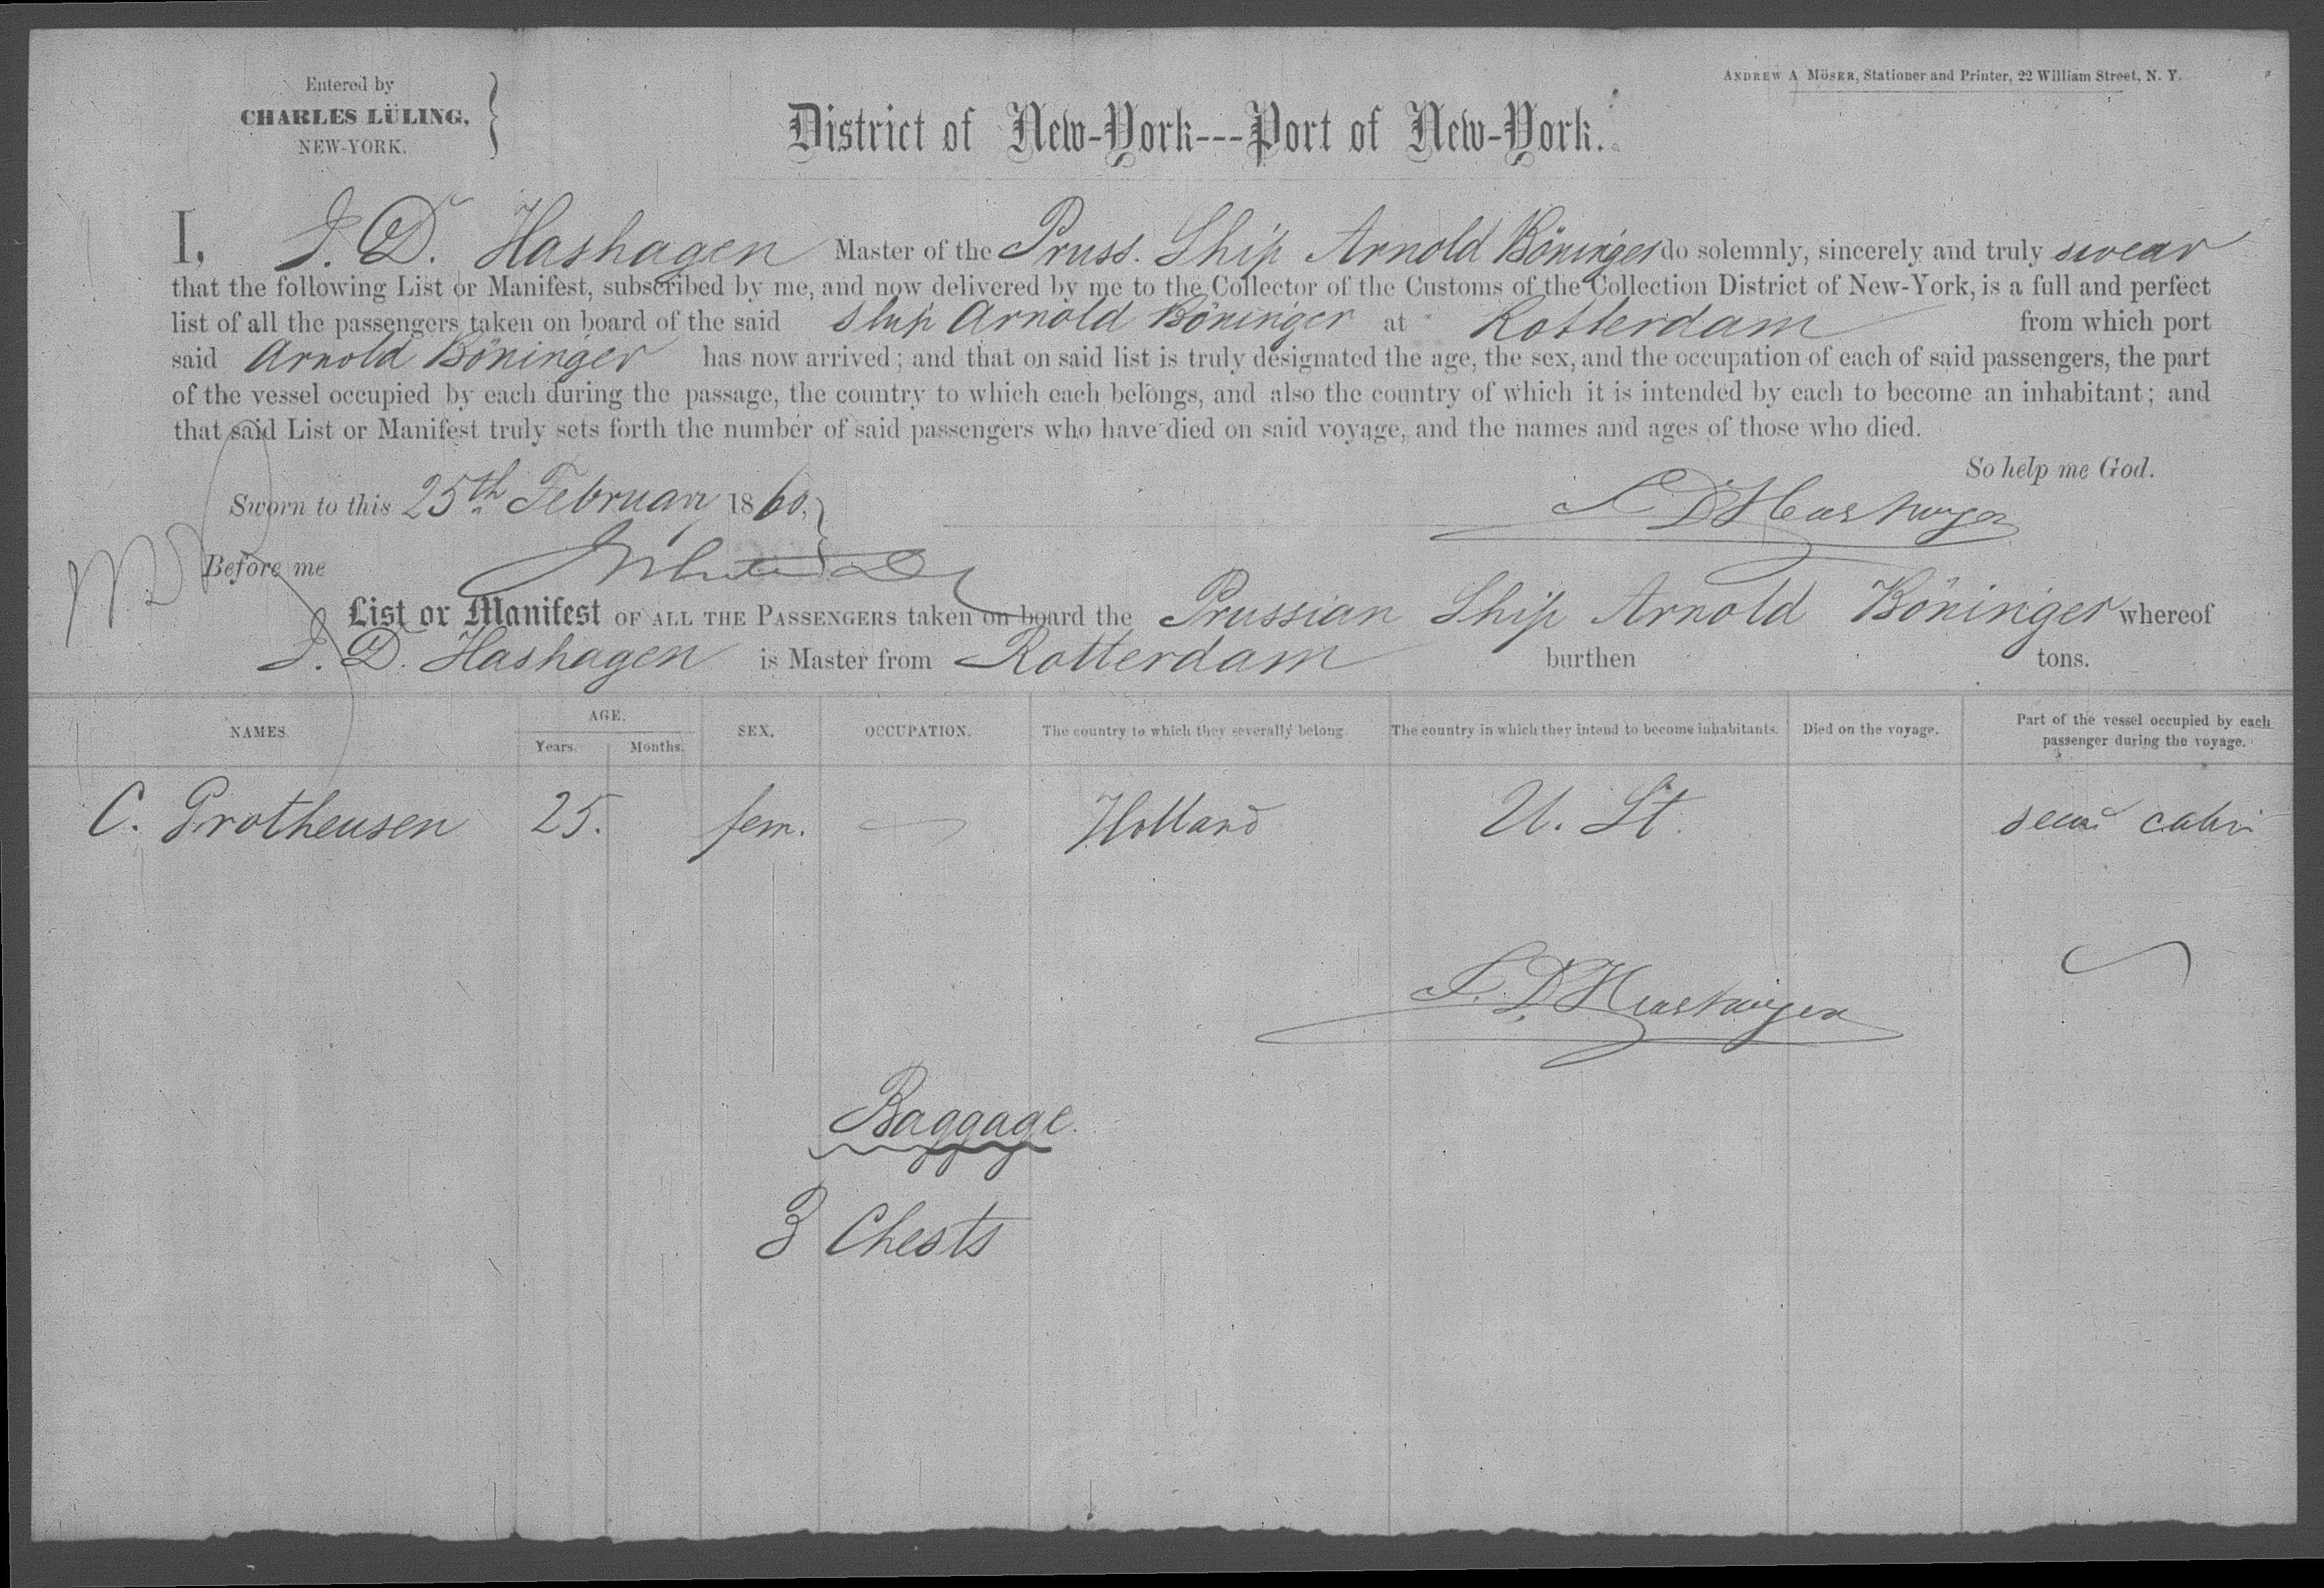 Entered by
CHARLES LÜLING,
NEW-YORK.
ANDREW A MÖSER, Stationer and Printer, 22 William Street, N. Y.
District of New-York---Port of New-York.
I, J. D. Hashagen Master of the Pruss. Ship Arnold Böninger do solemnly, sincerely and truly swear
that the following List or Manifest, subscribed by me, and now delivered by me to the Collector of the Customs of the Collection District of New-York, is a full and perfect
list of all the passengers taken on board of the said Ship Arnold Böninger at Rotterdam from which port
said Arnold Böninger has now arrived; and that on said list is truly designated the age, the sex, and the occupation of each of said passengers, the part
of the vessel occupied by each during the passage, the country to which each belongs, and also the country of which it is intended by each to become an inhabitant; and
that said List or Manifest truly sets forth the number of said passengers who have died on said voyage, and the names and ages of those who died.
So help me God.
Sworn to this 25th February 1860. J D Hashagen
Before me
List or Manifest OF ALL THE PASSENGERS taken on board the Prussian Ship Arnold Böninger whereof
J. D. Hashagen is Master from Rotterdam burthen tons.
NAMES. AGE. Years. Months. SEX. OCCUPATION. The country to which they severally belong. The country in which they intend to become inhabitants. Died on the voyage. Part of the vessel occupied by each passenger during the voyage.
C. Grotheusen 25. fem. — Holland U. St. cabin
J. D. Hashagen
Baggage.
3 Chests